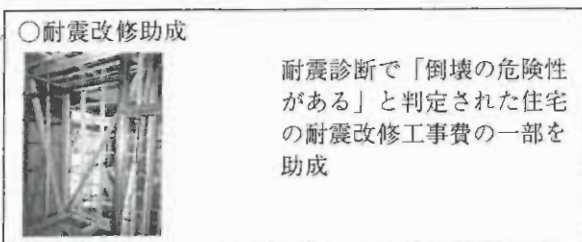 ○耐震改修助成
耐震診断で「倒壊の危険性
がある」と判定された住宅
の耐震改修工事費の一部を
助成